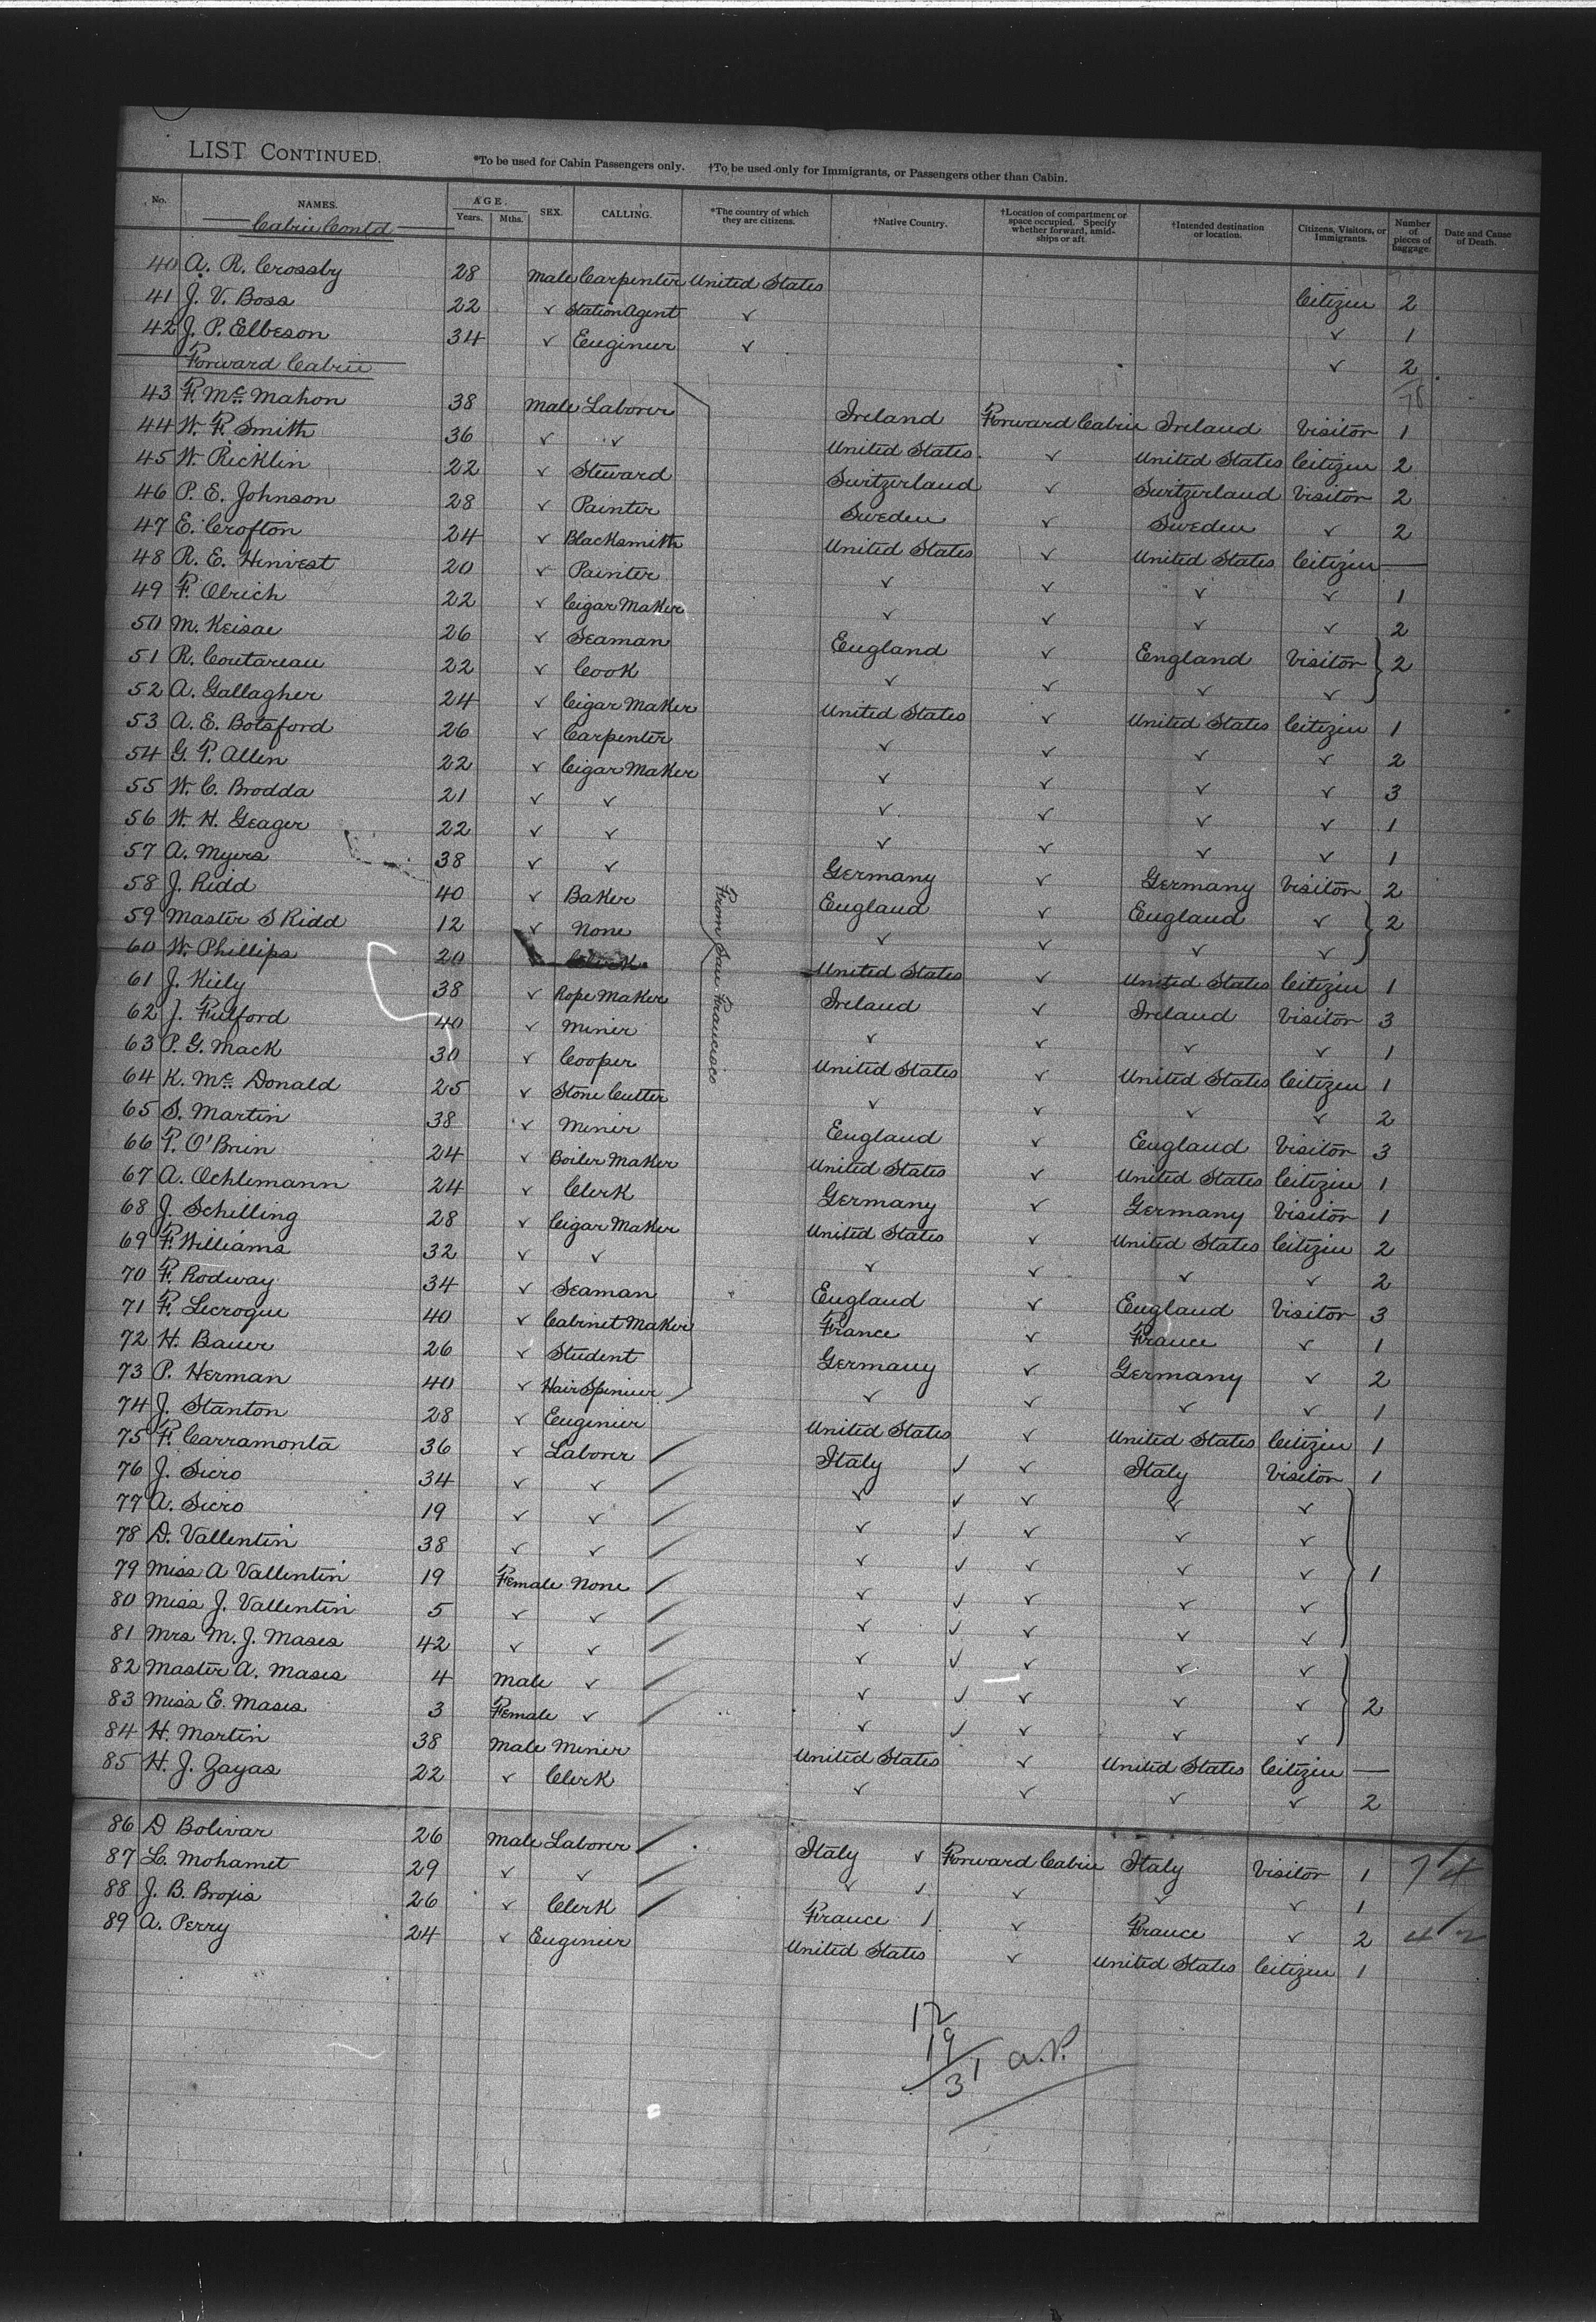 LIST CONTINUED.
*To be used for Cabin Passengers only. †To be used only for Immigrants, or Passengers other than Cabin.
No. NAMES. AGE. Years. Mths. SEX. CALLING. *The country of which they are citizens. †Native Country. †Location of compartment or space occupied. Specify whether forward, amidships or aft. †Intended destination or location. Citizens, Visitors, or Immigrants. Number of pieces of baggage. Date and Cause of Death.
Cabin Contd
40 A. R. Crossby 28 Male Carpenter United States Citizen 2
41 J. V. Boss 22 ✓ Station Agent ✓ ✓ 1
42 J. P. Elbeson 34 ✓ Engineer ✓ ✓ 2
Forward Cabin
43 F. Mc Mahon 38 Male Laborer Ireland Forward Cabin Ireland Visitor 1
44 W. F. Smith 36 ✓ ✓ United States ✓ United States Citizen 2
45 W. Ricklin 22 ✓ Steward Switzerland ✓ Switzerland Visitor 2
46 P. E. Johnson 28 ✓ Painter Sweden ✓ Sweden ✓ 2
47 E. Crofton 24 ✓ Blacksmith United States ✓ United States Citizen —
48 R. E. Hinvest 20 ✓ Painter ✓ ✓ ✓ ✓ 1
49 F. Olrich 22 ✓ Cigar Maker ✓ ✓ ✓ ✓ 2
50 M. Keisae 26 ✓ Seaman England ✓ England Visitor 2
51 R. Coutareau 22 ✓ Cook ✓ ✓ ✓ ✓
52 A. Gallagher 24 ✓ Cigar Maker United States ✓ United States Citizen 1
53 A. E. Botsford 26 ✓ Carpenter ✓ ✓ ✓ ✓ 2
54 G. P. Allen 22 ✓ Cigar Maker ✓ ✓ ✓ ✓ 3
55 W. C. Brodda 21 ✓ ✓ ✓ ✓ ✓ ✓ 1
56 W. H. Geager 22 ✓ ✓ ✓ ✓ ✓ ✓ 1
57 A. Myers 38 ✓ ✓ Germany ✓ Germany Visitor 2
58 J. Ridd 40 ✓ Baker England ✓ England ✓ 2
59 Master S Ridd 12 ✓ None ✓ ✓ ✓ ✓
60 W. Phillips 20 ✓ Clerk United States ✓ United States Citizen 1
61 J. Kiely 38 ✓ Rope Maker Ireland ✓ Ireland Visitor 3
62 J. Fulford 40 ✓ Miner ✓ ✓ ✓ ✓ 1
63 P. G. Mack 30 ✓ Cooper United States ✓ United States Citizen 1
64 K. Mc Donald 25 ✓ Stone Cutter ✓ ✓ ✓ ✓ 2
65 S. Martin 38 ✓ Miner England ✓ England Visitor 3
66 P. O'Brien 24 ✓ Boiler Maker United States ✓ United States Citizen 1
67 A. Ochlemann 24 ✓ Clerk Germany ✓ Germany Visitor 1
68 J. Schilling 28 ✓ Cigar Maker United States ✓ United States Citizen 2
69 F. Williams 32 ✓ ✓ ✓ ✓ ✓ ✓ 2
70 F. Rodway 34 ✓ Seaman England ✓ England Visitor 3
71 F. Lecroque 40 ✓ Cabinet Maker France ✓ France ✓ 1
72 H. Bauer 26 ✓ Student Germany ✓ Germany ✓ 2
73 P. Herman 40 ✓ Hair Spinner ✓ ✓ ✓ ✓ 1
From San Francisco
74 J. Stanton 28 ✓ Enginier United States ✓ United States Citizen 1
75 F. Carramonta 36 ✓ Laborer Italy ✓ ✓ Italy Visitor 1
76 J. Sicro 34 ✓ ✓ ✓ ✓ ✓ ✓ ✓
77 A. Sicro 19 ✓ ✓ ✓ ✓ ✓ ✓ ✓
78 D. Vallentin 38 ✓ ✓ ✓ ✓ ✓ ✓ ✓ 1
79 Miss A Vallentin 19 Female None ✓ ✓ ✓ ✓ ✓
80 Miss J. Vallentin 5 ✓ ✓ ✓ ✓ ✓ ✓ ✓
81 Mrs M. J. Mases 42 ✓ ✓ ✓ ✓ ✓ ✓ ✓
82 Master A. Mases 4 Male ✓ ✓ ✓ ✓ ✓ ✓ 2
83 Miss E. Mases 3 Female ✓ ✓ ✓ ✓ ✓ ✓
84 H. Martin 38 Male Miner United States ✓ United States Citizen —
85 H. J. Zayas 22 ✓ Clerk ✓ ✓ ✓ ✓ 2
86 D Bolivar 26 Male Laborer Italy ✓ Forward Cabin Italy Visitor 1
87 L. Mohamet 29 ✓ ✓ ✓ ✓ ✓ ✓ ✓ 1
88 J. B. Broxis 26 ✓ Clerk France ✓ France ✓ 2
89 A. Perry 24 ✓ Enginier United States ✓ United States Citizen 1
12
19
31 a.P.